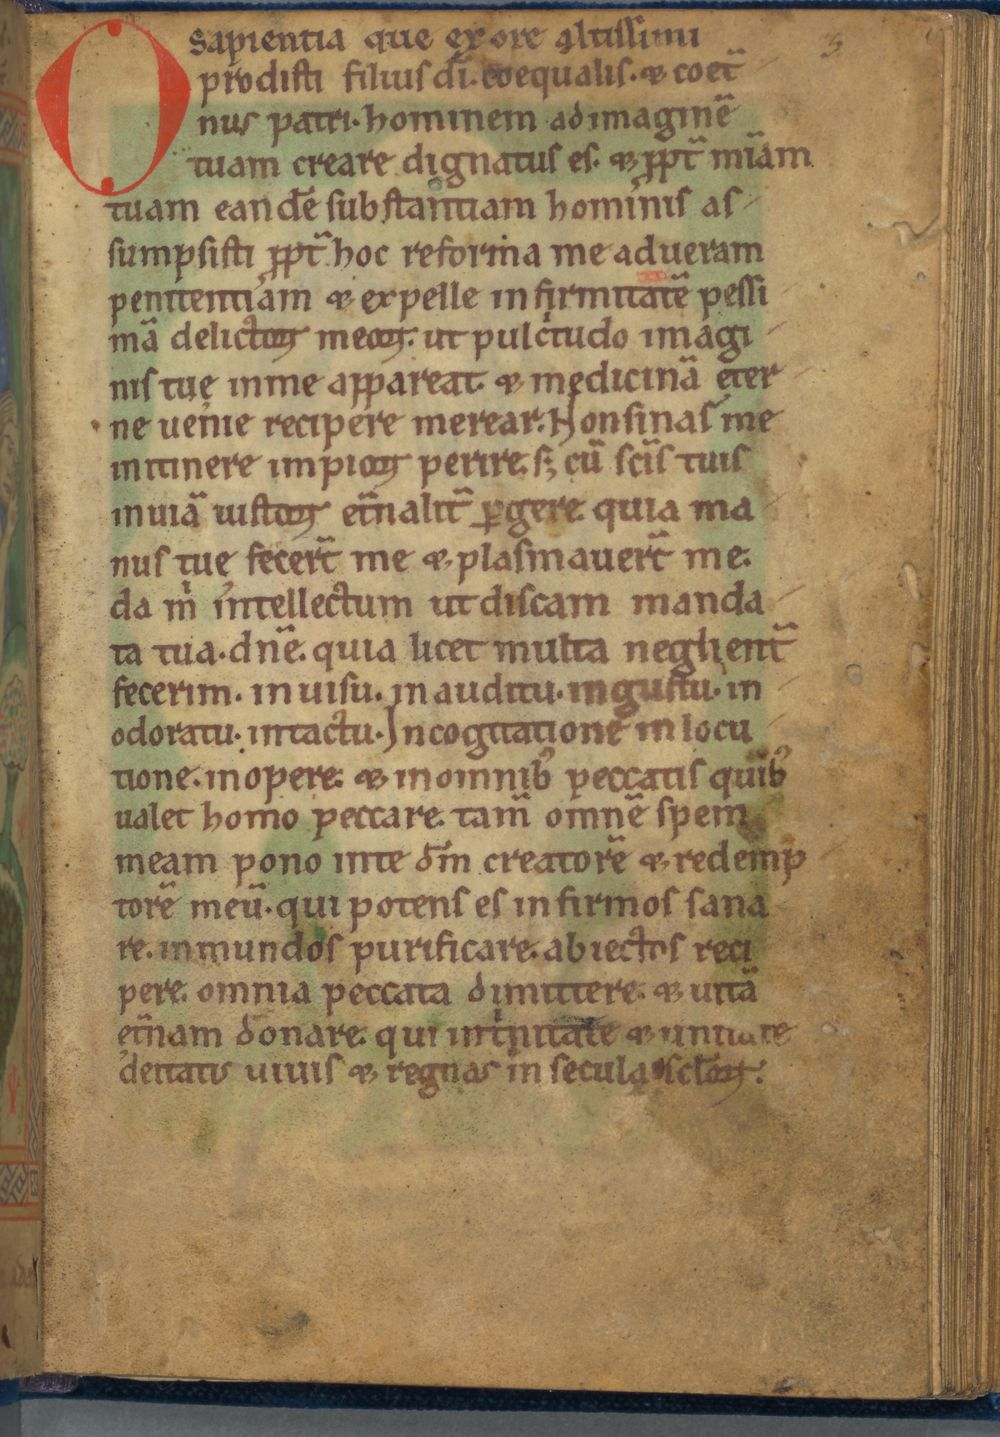 3
O Sapientia que ex ore altissimi
prodisti filius dī. coequalis. & coet̄
nus patri. hominem ad imaginē
tuam creare dignatus es. & ꝓpt̄ mīam
tuam eandē substantiam hominis as
sumpsisti ꝓpt̄ hoc reforma me ad ueram
penitentiam & expelle infirmitatē pessi
mā delictoꝝ meoꝝ. ut pulc̄tudo imagi
nis tuę in me appareat. & medicinā ęter
ne uenie recipere merear. Non sinas me
in itinere impioꝝ perire. sꝫ cū sc̄is tuis
in uiā iustoꝝ et̄nalit̄ ꝑgere. quia ma
nus tuę fecer̄t me & plasmauer̄t me.
da m̄ intellectum ut discam manda
ta tua. dn̄e. quia licet multa neglient̄
fecerim. in uisu. in auditu. in gustu. in
odoratu. in tactu. In cogitatione in locu
tione. in opere. & in omnibꝰ peccatis quibꝰ
ualet homo peccare. tam̄ omnē spem
meam pono in te dm̄ creatorē & redemp
torē meū. qui potens es infirmos sana
re. inmundos purificare. abiectos reci
pere. omnia peccata dimittere. & uitā
et̄nam donare. qui in t̄nitate & unitate
deitatis uiuis & regnas in secula sc̄loꝝ.